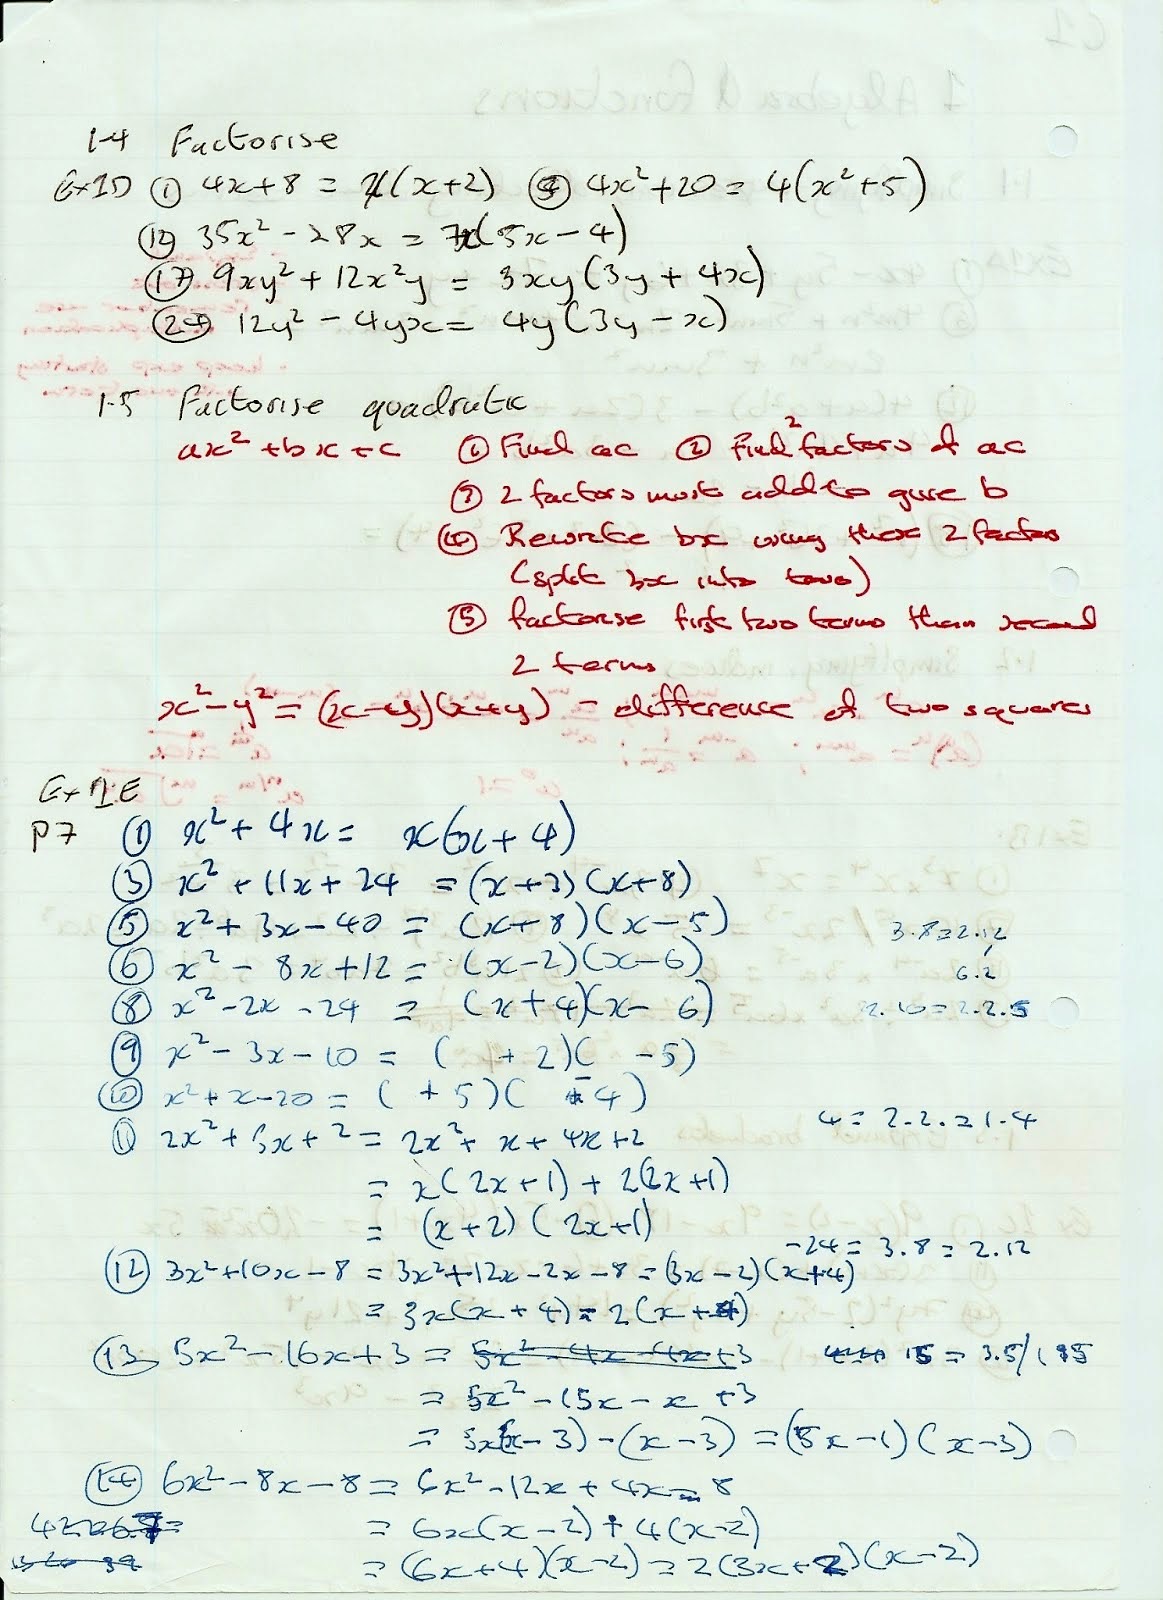 1.4 Factorise
Ex1D ① 4x+8 = 4(x+2) ⑨ 4x²+20 = 4(x²+5)
35x² - 28x = 7x(5x-4)
⑰ 9xy² + 12x²y = 3xy(3y + 4x)
㉔ 12y² - 4yx = 4y(3y - x)
1.5 Factorise quadratic
ax² + bx + c ① Find ac ② Find 2 factors of ac
③ 2 factors must add to give b
④ Rewrite bx using these 2 factors
(split bx into two)
⑤ factorise first two terms then second
2 terms
x² - y² = (x-y)(x+y) - difference of two squares
Ex 1E
P7 ① x² + 4x = x(x + 4)
③ x² + 11x + 24 = (x+3)(x+8)
⑤ x² + 3x - 40 = (x+8)(x-5)
3.8=2.12
⑥ x² - 8x + 12 = (x-2)(x-6)
6.2
⑧ x² - 2x - 24 = (x+4)(x-6)
2.10=2.2.5
⑨ x² - 3x - 10 = ( +2)( -5)
⑩ x² + x - 20 = ( +5)( -4)
4 = 2.2. = 1.4
⑪ 2x² + 5x + 2 = 2x² + x + 4x + 2
= x(2x+1) + 2(2x+1)
= (x+2)(2x+1)
-24 = 3.8 = 2.12
⑫ 3x²+10x-8 = 3x²+12x-2x-8 = (3x-2)(x+4)
= 3x(x+4) - 2(x+4)
⑬ 5x² - 16x + 3 = 5x² - 4x - 4x + 3 15 = 3.5/1.15
= 5x² - 15x - x + 3
= 5x(x-3) - (x-3) = (5x-1)(x-3)
⑭ 6x² - 8x - 8 = 6x² - 12x + 4x - 8
= 6x(x-2) + 4(x-2)
= (6x+4)(x-2) = 2(3x+2)(x-2)